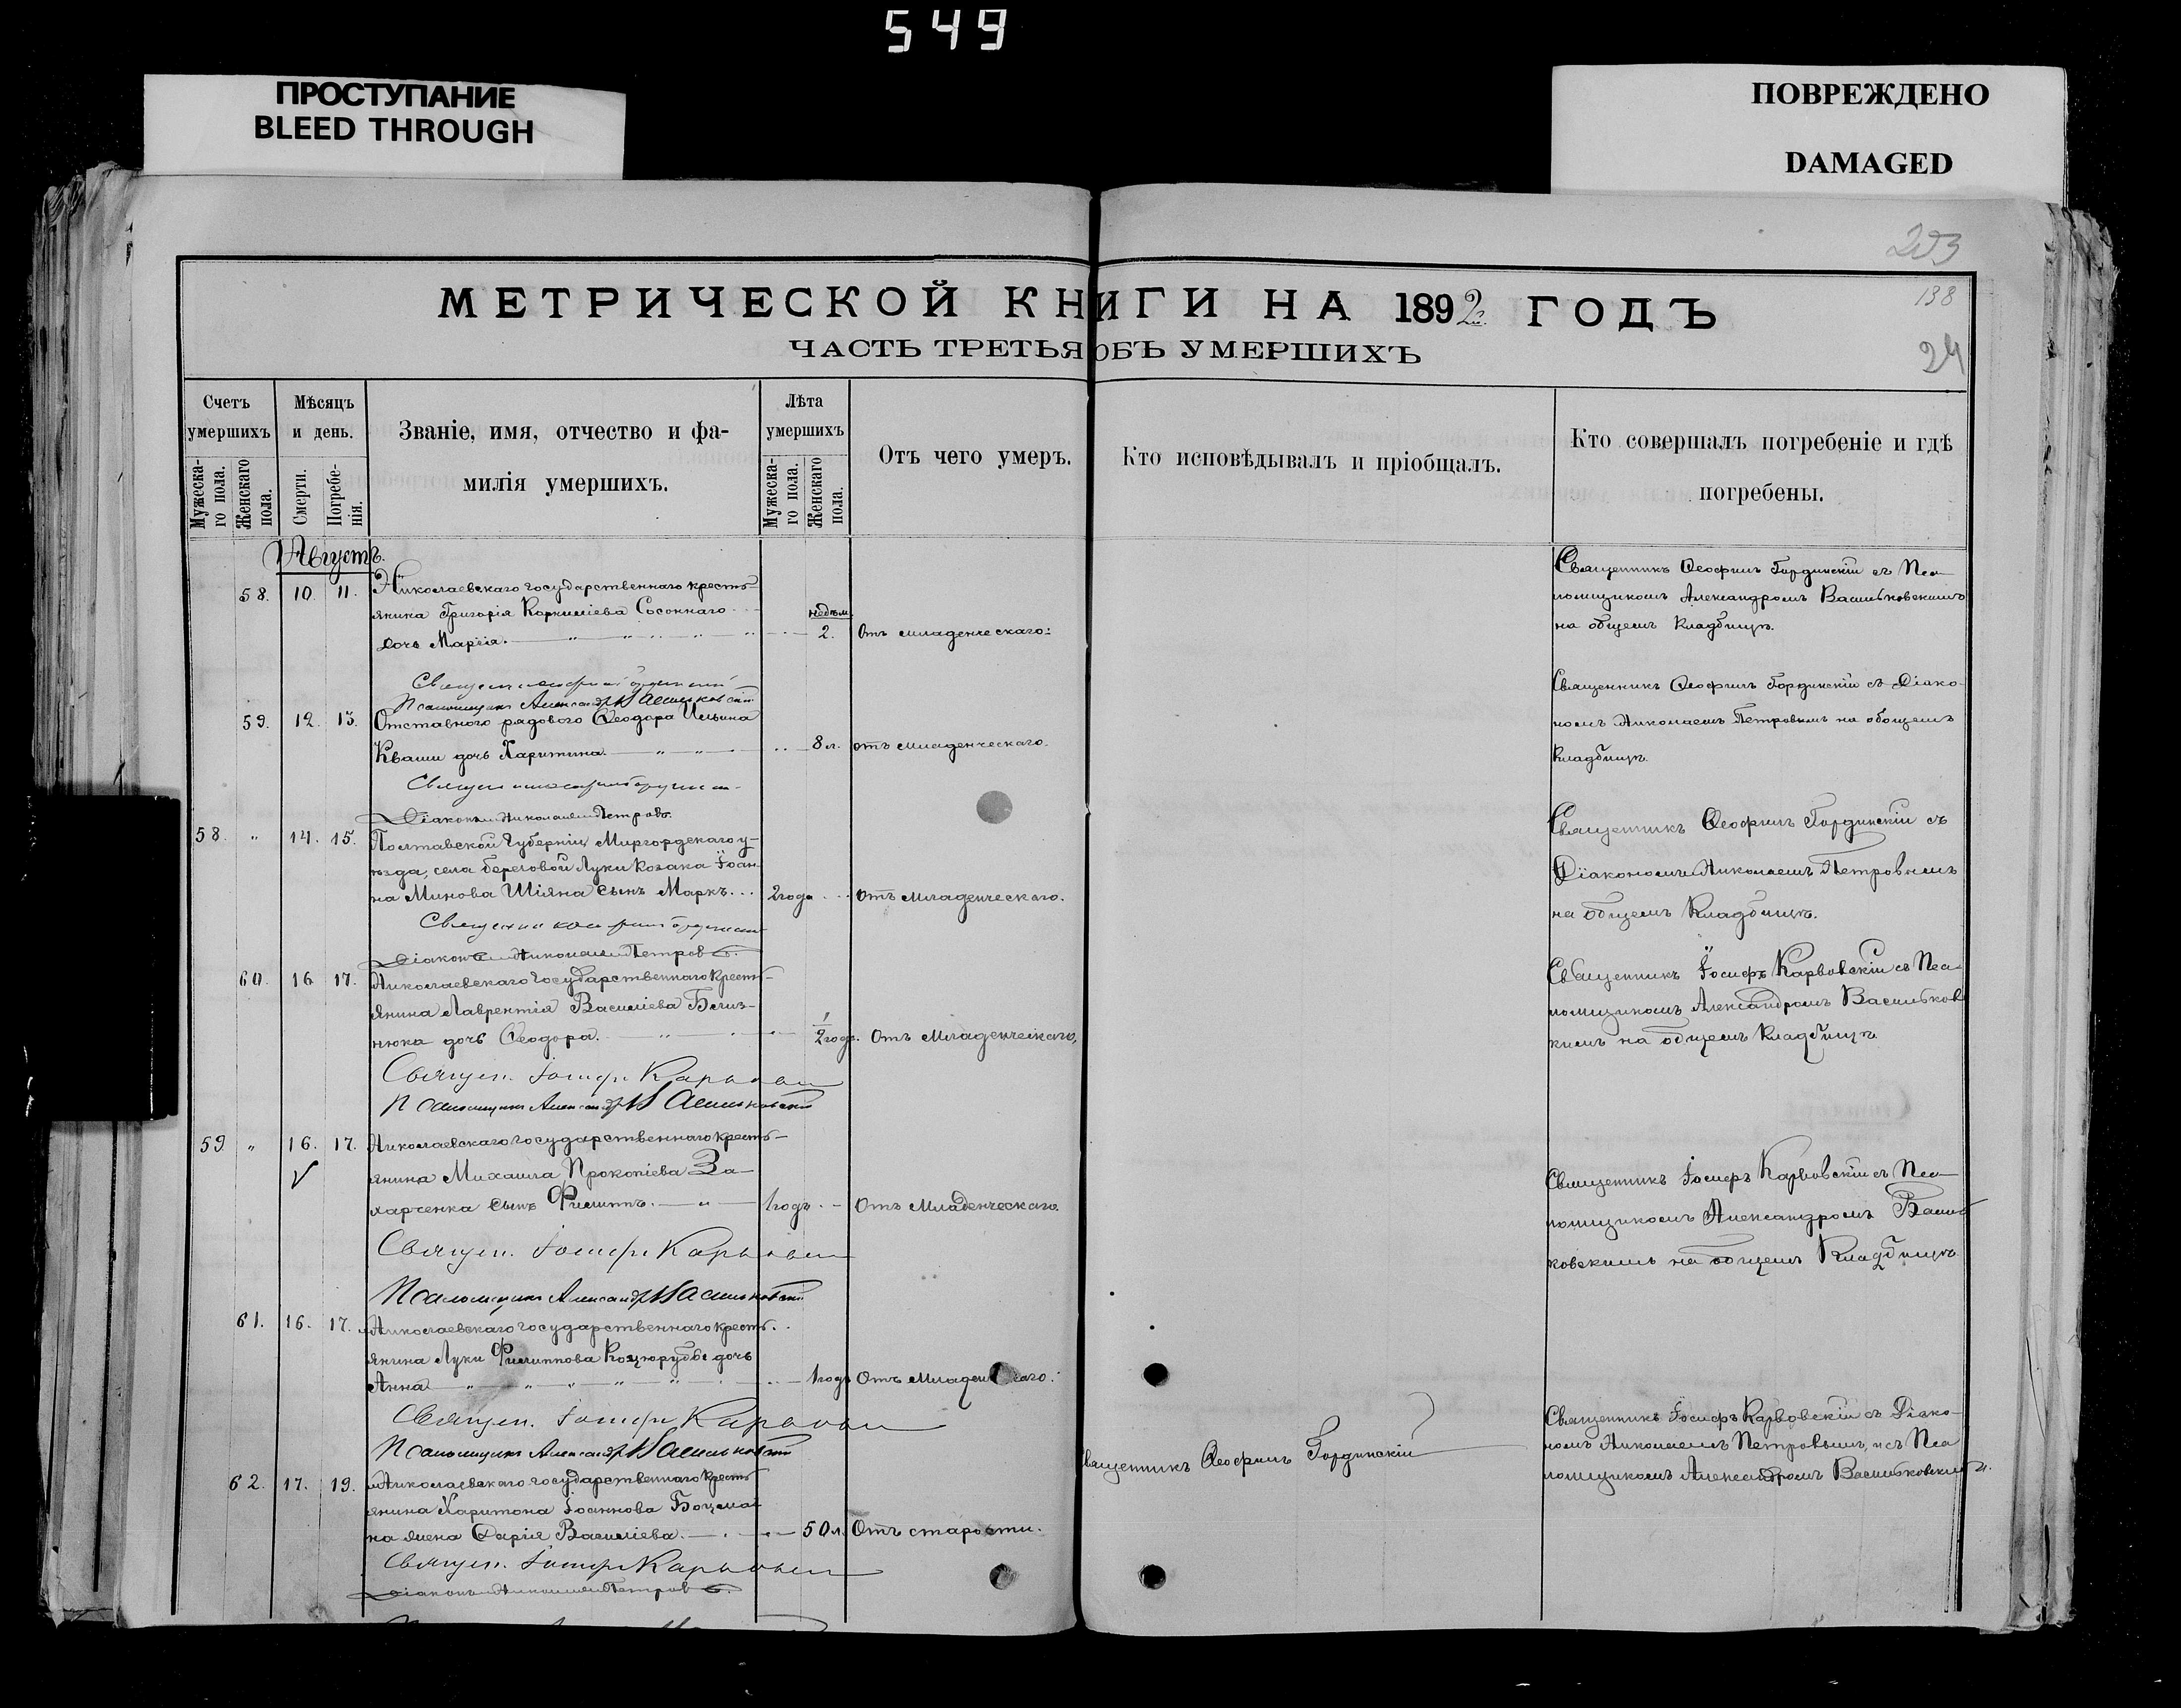 549
ПРОСТУПАНИЕ
BLEED THROUGH
ПОВРЕЖДЕНО
DAMAGED
203
138
24
МЕТРИЧЕСКОЙ КНИГИ НА 1892 ГОДЪ
ЧАСТЬ ТРЕТЬЯ ОБЪ УМЕРШИХЪ
Счетъ умершихъ
Мужеска-
го пола.
Женскаго
пола.
Мѣсяцъ
и день.
Смерти.
Погребе-
нія.
Званіе, имя, отчество и фа-
милія умершихъ.
Лѣта
умершихъ
Мужеска-
го пола.
Женскаго
пола.
Отъ чего умеръ.
Кто исповѣдывалъ и пріобщалъ.
Кто совершалъ погребеніе и гдѣ
погребены.
Августъ.
58. 10. 11. Николаевскаго государственнаго кресть-
янина Григорія Корниліева Сосоннаго
дочь Марія. недѣл. 2. Отъ младенческаго.
Священникъ Ѳеофилъ Гординскій съ Пса-
ломщикомъ Александромъ Васильковскимъ
на общемъ кладбищѣ.
Псаломщикъ Александръ Васильковскій
59. 12. 13. Отставного рядового Ѳеодора Ильина
Кваши дочь Харитина. 8 л. отъ младенческаго.
Священникъ Ѳеофилъ Гординскій съ Діако-
номъ Николаемъ Петровымъ на общемъ
кладбищѣ.
Діаконъ Николай Петровъ.
58. " 14. 15. Полтавской Губерніи Миргордскаго у-
ѣзда, села береговой Луки козака Іоан-
на Минова Шіяна сынъ Маркъ... 2 года Отъ Младенческаго.
Священникъ Ѳеофилъ Гординскій съ
Діакономъ Николаемъ Петровымъ
на общемъ Кладбищѣ.
Діаконъ Николай Петровъ.
60. 16. 17. Николаевскаго Государственнаго Кресть-
янина Лаврентія Василіева Близ-
нюка дочь Ѳеодора. 1/2 года. Отъ Младенческаго.
Священникъ Іосифъ Карвовскій съ Пса-
ломщикомъ Александромъ Васильков
кимъ на общемъ Кладбищѣ
Священ. Іосифъ Карвовскій
Псаломщикъ Александръ Васильковскій
59. " 16. 17. Николаевскаго государственнаго кресть-
янина Михаила Прокопіева За-
харченка сынъ Филиппъ. 1 годъ Отъ Младенческаго.
Священникъ Іосифъ Карвовскій съ Пса-
ломщикомъ Александромъ Василь
ковскимъ на общемъ Кладбищѣ
Священ. Іосифъ Карвовскій
Псаломщикъ Александръ Васильковскій
61. 16. 17. Николаевскаго Государственнаго кресть-
янина Луки Филиппова дочь
Анна 1 годъ Отъ
Священ. Іосифъ Карвовскій
Псаломщикъ Александръ Васильковскій
62. 17. 19. Николаевскаго государственнаго кресть
янина Харитона Іоаннова Боцма
на жена Дарія Василіева. 50 л. Отъ старости.
Священникъ Ѳеофилъ Гординскій
Священникъ Іосифъ Карвовскій съ Діако-
номъ Николаемъ Петровымъ, и съ Пса
ломщикомъ Александромъ Васильковскимъ.
Священ. Іосифъ Карвовскій
Діаконъ Николай Петровъ.